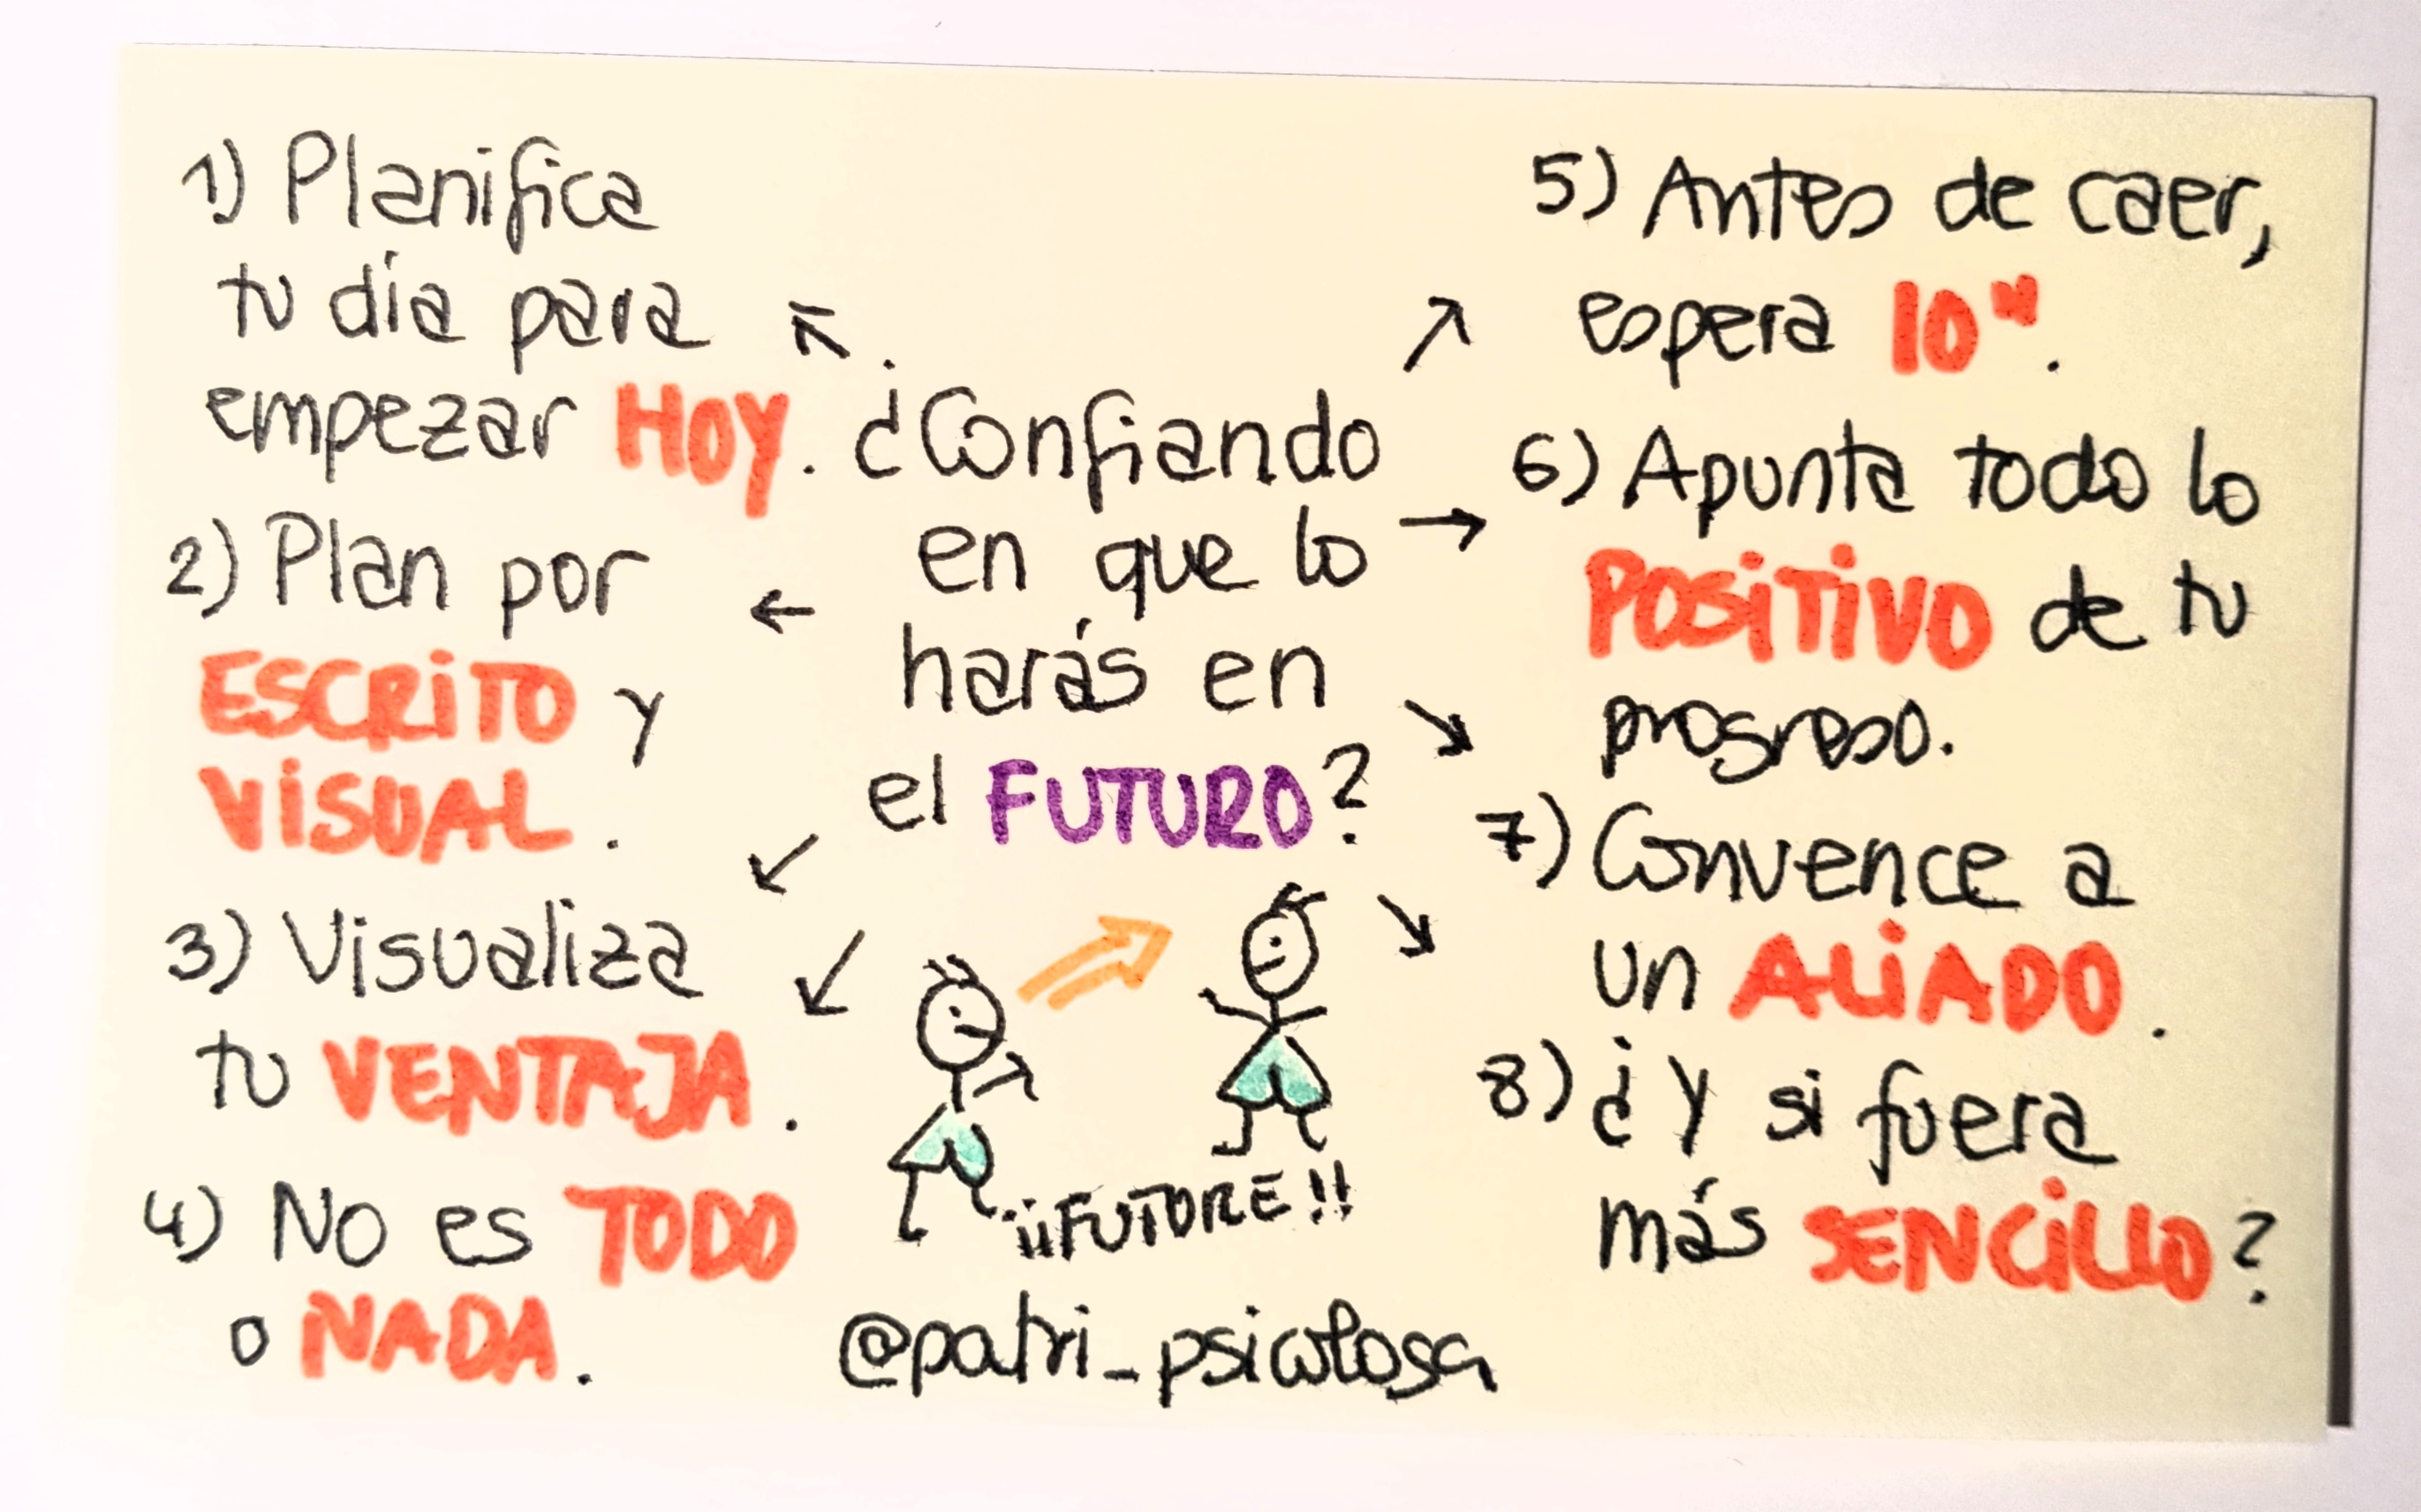 1) Planifica
tu día para
empezar HOY.
2) Plan por
ESCRITO y
VISUAL.
3) Visualiza
tu VENTAJA.
4) No es TODO
o NADA.
¿Confiando
en que lo
harás en
el FUTURO?
¡¡FUTURE!!
@patri_psicologa
5) Antes de caer,
espera 10".
6) Apunta todo lo
POSITIVO de tu
progreso.
7) Convence a
un ALIADO.
8) ¿Y si fuera
más SENCILLO?